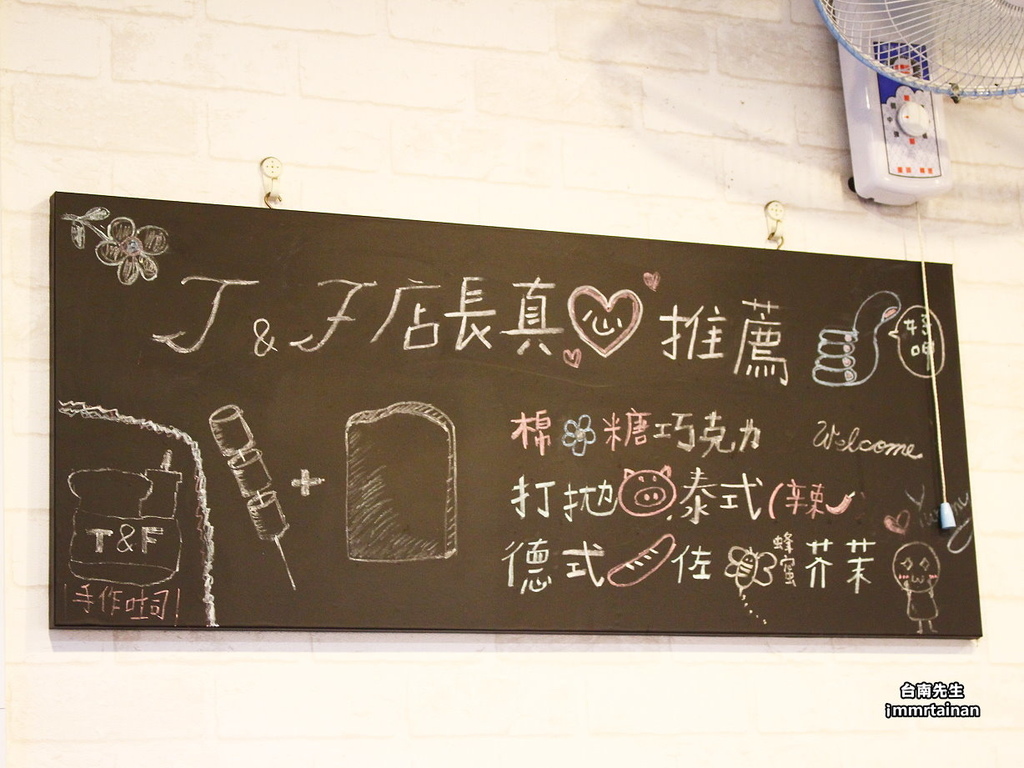 T & F 店長真心推薦
好呷
棉糖巧克力
Welcome
打拋泰式(辣
德式佐蜂蜜芥茉
Yummy
T&F
手作吐司
台南先生
jmmrtainan